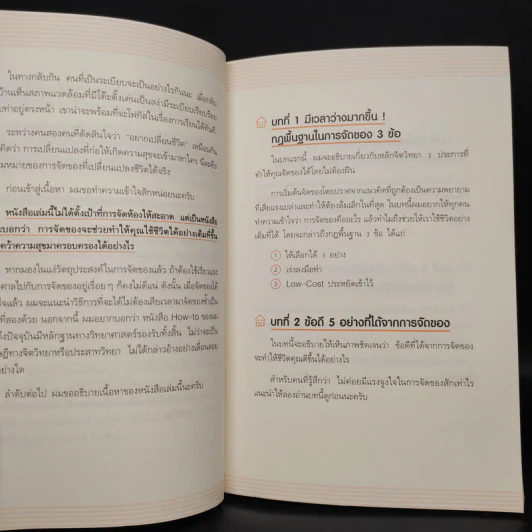 ในทางกลับกัน คนที่เป็นระเบียบจะเป็นอย่างไรกันนะ เมื่อกลับ
บ้านเห็นสภาพแวดล้อมที่มีโต๊ะตั้งเด่นเป็นสง่ามีระเบียบเรียบร้อย
อยู่ตรงหน้า เขาน่าจะพร้อมที่จะโฟกัสในเรื่องการเรียนได้ทันที
ระหว่างคนสองคนที่ตัดสินใจว่า “อยากเปลี่ยนชีวิต” เหมือนกัน
การเปลี่ยนแปลงที่ก่อให้เกิดความสุขจะเข้ามาหาใคร นี่ละคือ
หมายของการจัดของที่เปลี่ยนแปลงชีวิตได้จริง
ก่อนเข้าสู่เนื้อหา ผมขอทำความเข้าใจสักหน่อยนะครับ
หนังสือเล่มนี้ไม่ได้ตั้งเป้าที่การจัดห้องให้สะอาด แต่เป็นหนังสือ
บอกว่า การจัดของจะช่วยทำให้คุณใช้ชีวิตได้อย่างเต็มที่ขึ้น
คว้าความสุขมาครอบครองได้อย่างไร
หากมองในแง่วัตถุประสงค์ในการจัดของแล้ว ถ้าต้องใช้เรี่ยวแรง
ไปกับการจัดของอยู่เรื่อย ๆ ก็คงไม่ดีแน่ ดังนั้น เมื่อจัดของได้
แล้ว ผมจะแนะนำวิธีการที่จะได้ไม่ต้องเสียเวลามาจัดของซ้ำเป็น
ที่สองด้วย นอกจากนี้ ผมอยากบอกว่า หนังสือ How-to ของผม
ถึงปัจจุบันมีหลักฐานทางวิทยาศาสตร์รองรับทั้งสิ้น ไม่ว่าจะเป็น
ทางจิตวิทยาหรือประสาทวิทยา ไม่ได้กล่าวอ้างอย่างเลื่อนลอย
อย่างใด
ลำดับต่อไป ผมขออธิบายเนื้อหาของหนังสือเล่มนี้นะครับ
บทที่ 1 มีเวลาว่างมากขึ้น !
กฎพื้นฐานในการจัดของ 3 ข้อ
ในบทแรกนี้ ผมจะอธิบายเกี่ยวกับหลักจิตวิทยา 3 ประการที่
ทำให้คุณจัดของได้โดยไม่ต้องฝืน
การเริ่มต้นจัดของโดยปราศจากแนวคิดที่ถูกต้องเป็นความพยายาม
ที่เสียแรงเปล่าและทำให้ต้องล้มเลิกในที่สุด ในบทนี้ผมอยากให้ทุกคน
ทำความเข้าใจว่า การจัดของคืออะไร แล้วทำไมถึงช่วยให้เราใช้ชีวิตอย่าง
เต็มที่ได้ โดยจะกล่าวถึงกฎพื้นฐาน 3 ข้อ ได้แก่
① ให้เลือกได้ 3 อย่าง
② เร่งลงมือทำ
③ Low-Cost ประหยัดเข้าไว้
บทที่ 2 ข้อดี 5 อย่างที่ได้จากการจัดของ
ในบทนี้จะอธิบายให้เห็นภาพชัดเจนว่า ข้อดีที่ได้จากการจัดของ
จะทำให้ชีวิตคุณดีขึ้นได้อย่างไร
สำหรับคนที่รู้สึกว่า ไม่ค่อยมีแรงจูงใจในการจัดของสักเท่าไร
แนะนำให้ลองอ่านบทนี้ดูก่อนนะครับ